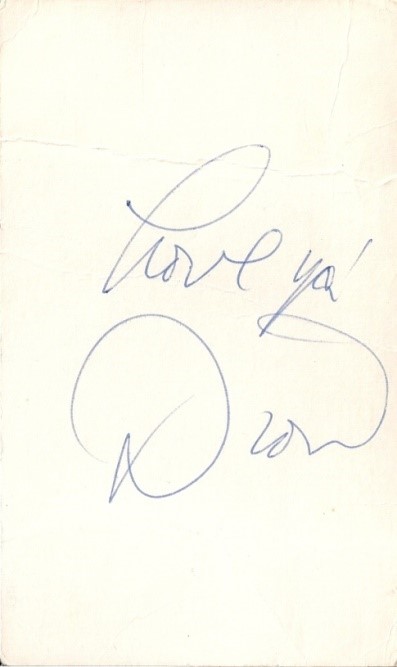 Love ya'
Dion